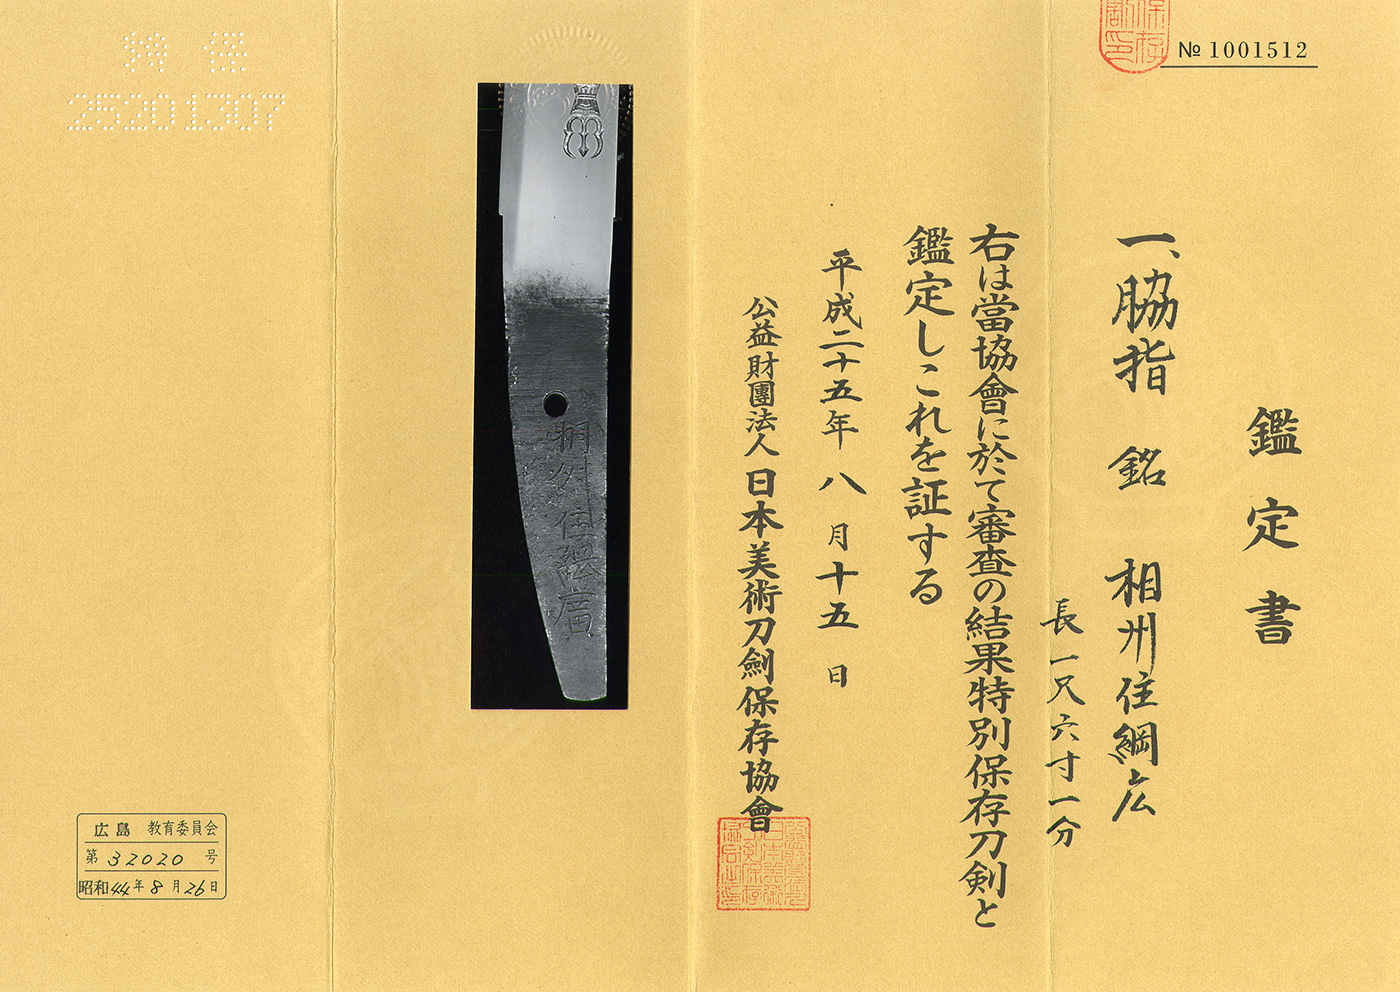 № 1001512
鑑定書
一、脇指 銘 相州住綱広
長一尺六寸一分
右は當協會に於て審査の結果特別保存刀剣と
鑑定しこれを証する
平成二十五年八月十五日
公益財團法人日本美術刀劍保存協會
相州住綱廣
特保
25201307
広島 教育委員会
第32020号
昭和44年8月26日